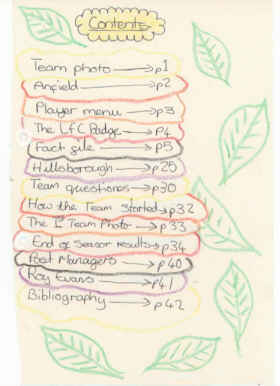 Contents
Team photo → p1
Anfield → p2
Player menu → p3
The LFC Badge → p4
Fact file → p5
Hillsborough → p25
Team questiones → p30
How the Team Started → p32
The 1st Team Photo → p33
End of Season results → p34
Past Managers → p40
Roy Evans → p41
Bibliography → p42